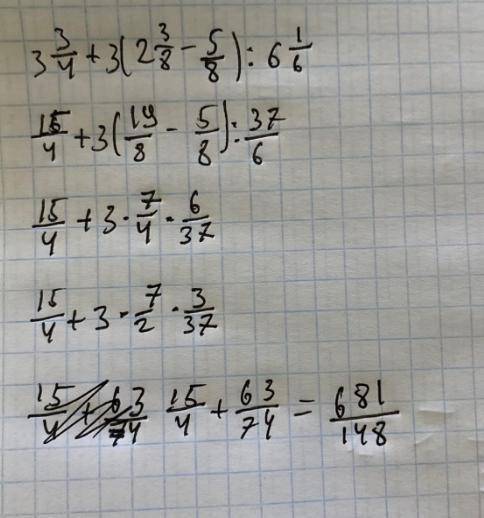 3 3/4 + 3(2 3/8 - 5/8) : 6 1/6
15/4 + 3(19/8 - 5/8) : 37/6
15/4 + 3 · 7/4 · 6/37
15/4 + 3 · 7/2 · 3/37
15/4 + 63/74 15/4 + 63/74 = 681/148